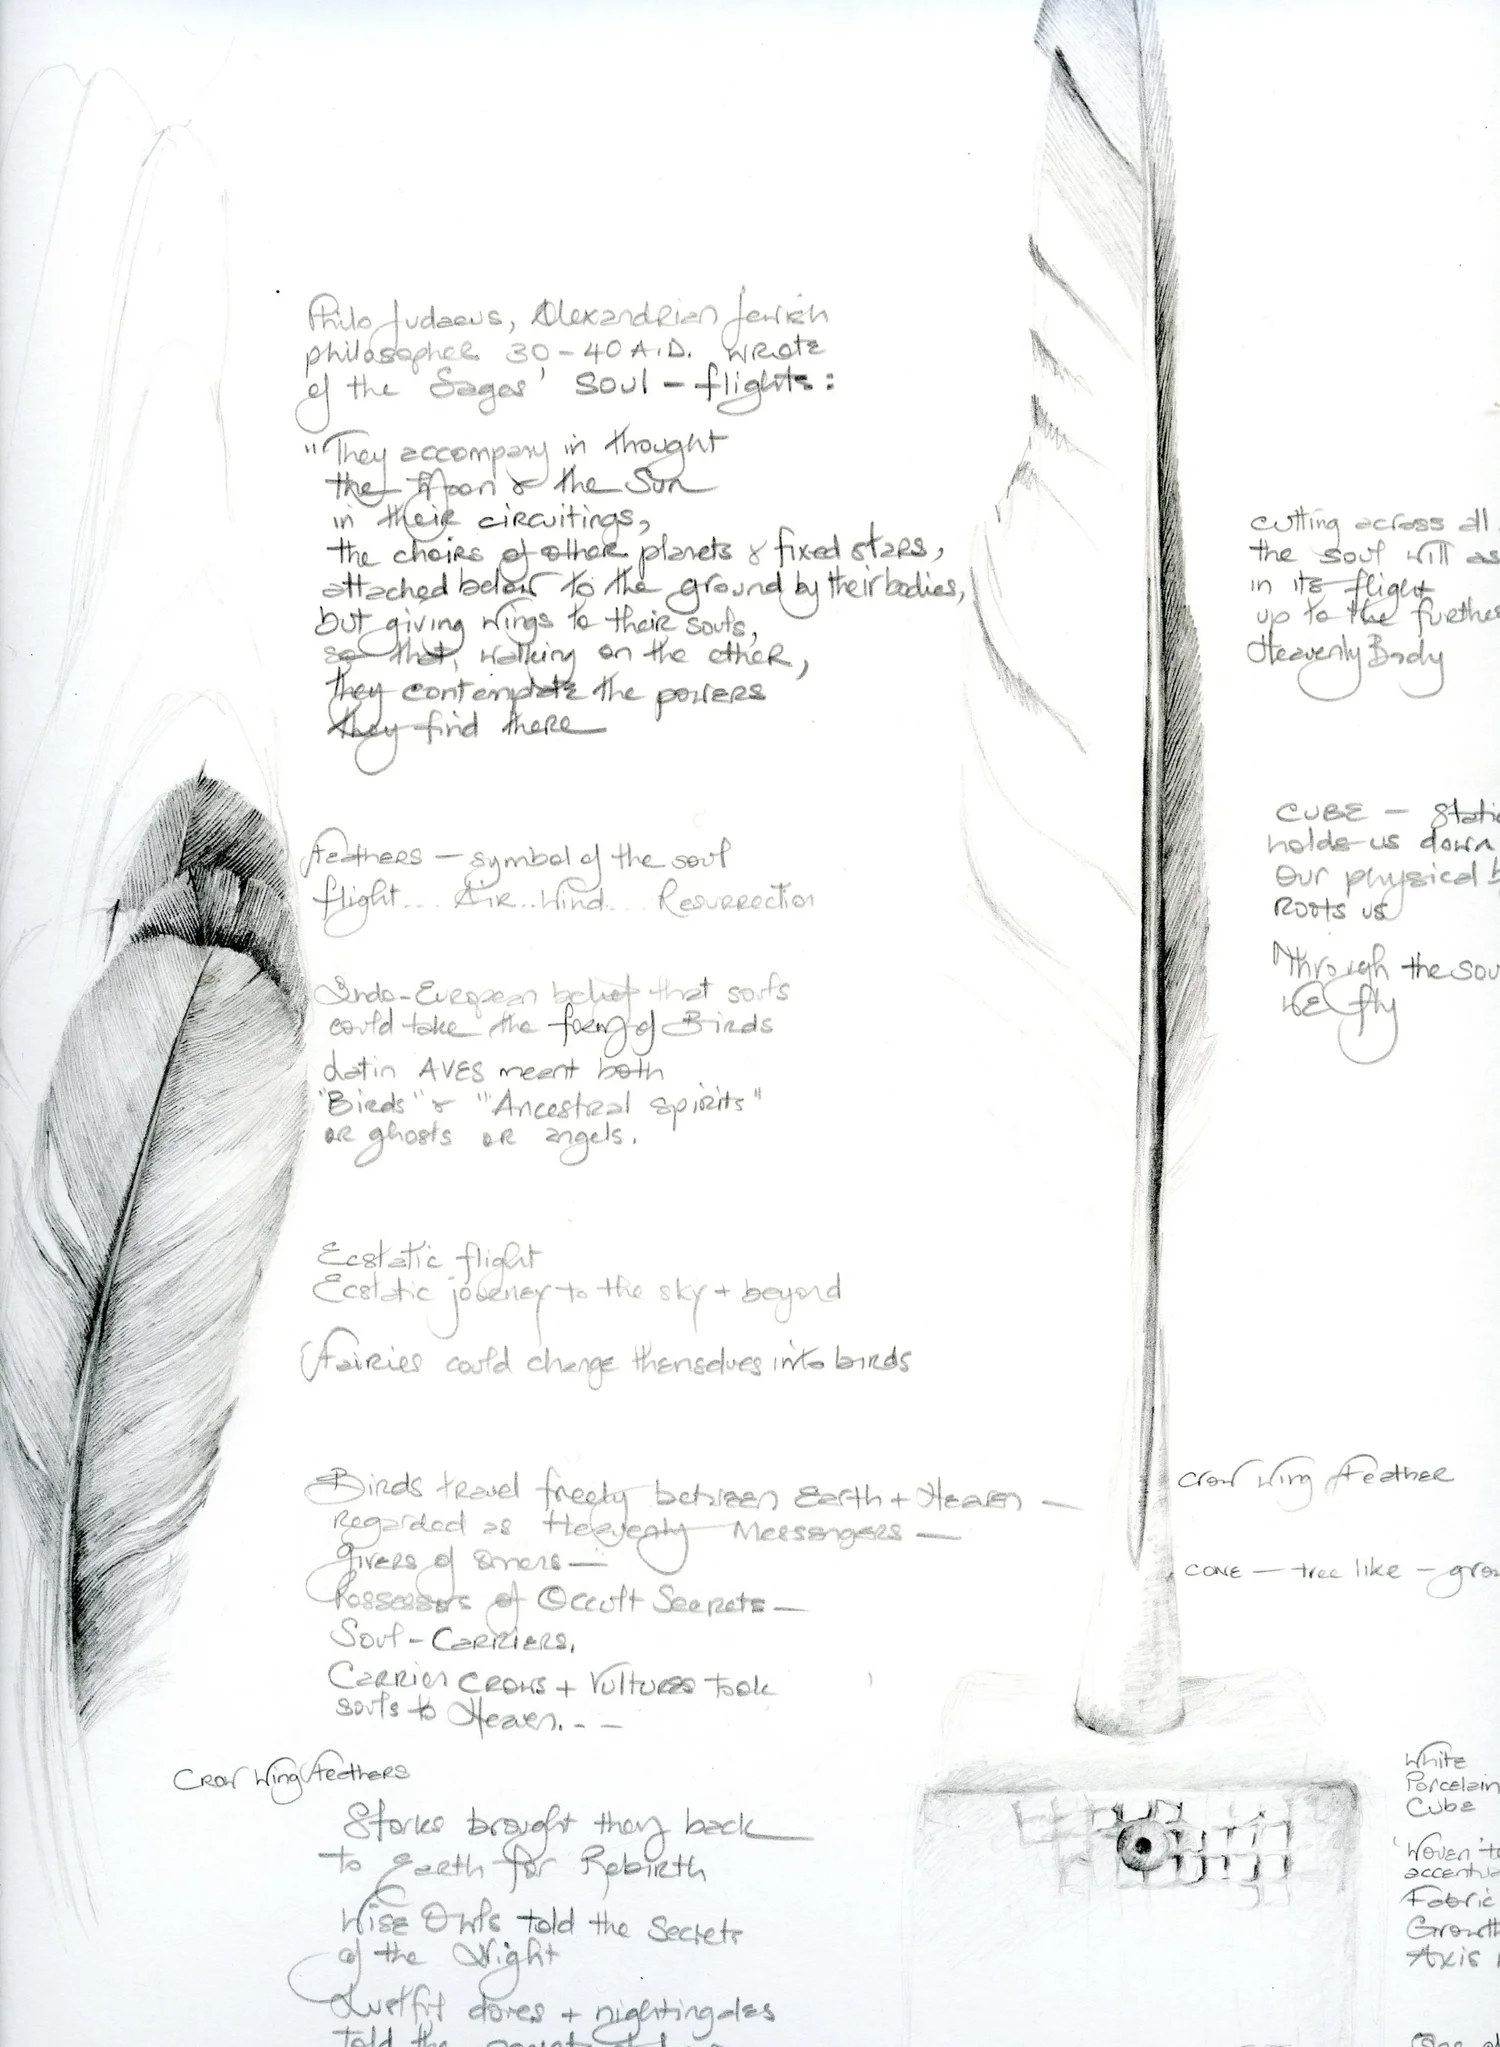 Philo Judaeus, Alexandrian Jewish
philosopher 30-40 A.D. wrote
of the Sages' Soul - flights:
"They accompany in thought
the Moon & the Sun
in their circuitings,
the choirs of other planets & fixed stars,
attached below to the ground by their bodies,
but giving wings to their souls,
so that, walking on the ether,
they contemplate the powers
they find there
Feathers - symbol of the soul
flight... Air.. Wind... Resurrection
Indo-European belief that souls
could take the form of Birds
Latin AVES meant both
"Birds" & "Ancestral Spirits"
or ghosts or angels.
Ecstatic flight
Ecstatic journey to the sky + beyond
Fairies could change themselves into birds
Birds travel freely between Earth + Heaven -
Regarded as Heavenly Messengers -
Givers of omens -
Possessors of Occult Secrets -
Soul - Carriers,
Carrion Crows + Vultures took
souls to Heaven. - -
Crow Wing Feathers
Storks brought them back
to Earth for Rebirth
Wise Owls told the Secrets
of the Night
Lustful doves + nightingales
told the
cutting across all
the soul will as
in its flight
up to the furthe
Heavenly Body
CUBE - Stati
holds us down
Our physical b
Roots us
Through the sou
we fly
Crow Wing Feather
CONE - tree like - gro
White
Porcelain
Cube
'Woven' to
accentua
Fabric
Growth
Axis